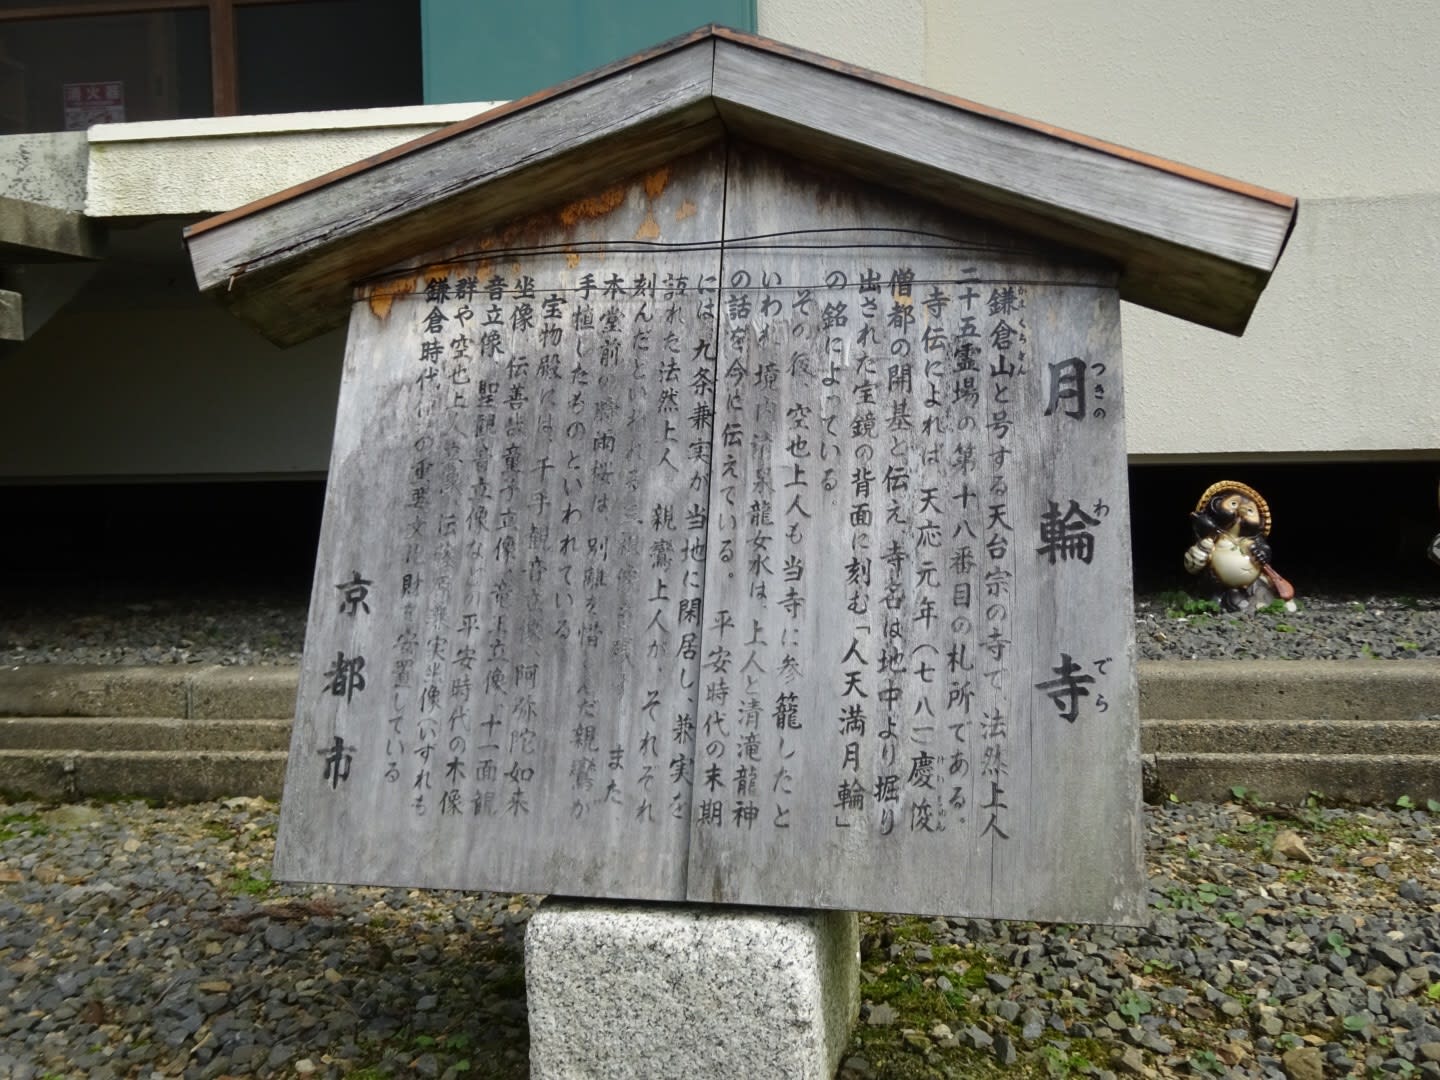 月輪寺
つきのわでら
鎌倉山と号する天台宗の寺で、法然上人
かまくらさん
二十五霊場の第十八番目の札所である。
寺伝によれば、天応元年(七八一)慶俊
けいしゅん
僧都の開基と伝え、寺名は地中より掘り
出された宝鏡の背面に刻む「人天満月輪」
の銘によっている。
その後、空也上人も当寺に参籠したと
いわれ、境内清泉龍女水は、上人と清滝龍神
の話を今に伝えている。平安時代の末期
には、九条兼実が当地に閑居し、兼実を
訪れた法然上人、親鸞上人が、それぞれ
刻んだといわれる三祖像 また、
本堂前の時雨桜は、別離を惜しんだ親鸞が
手植したものといわれている
宝物殿には、千手観音立像、阿弥陀如来
坐像、伝善哉童子立像、 十一面観
音立像、聖観音立像などの平安時代の木像
群や空也上人 兼実坐像(いずれも
鎌倉時代 の重要文化財を安置している
京都市
消火器